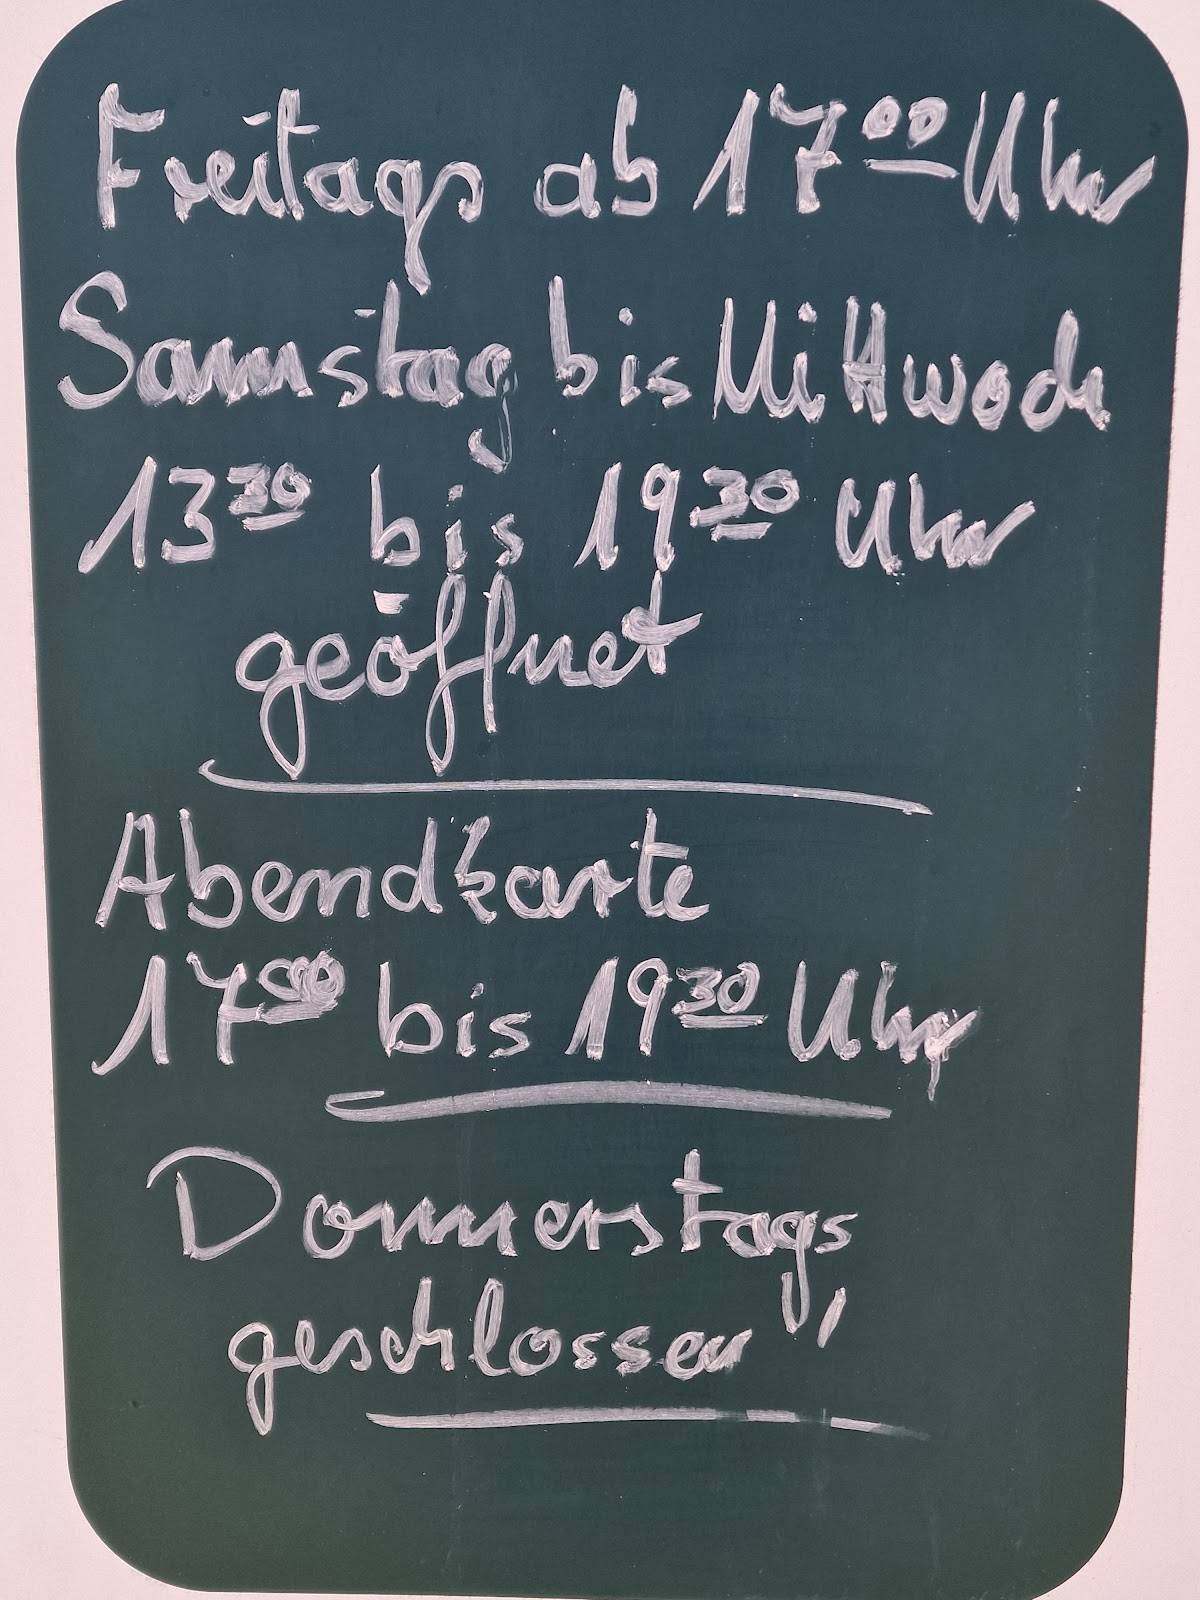 Freitags ab 17⁰⁰ Uhr
Samstag bis Mittwoch
13³⁰ bis 19³⁰ Uhr
geöffnet
Abendkarte
17⁰⁰ bis 19³⁰ Uhr
Donnerstags
geschlossen